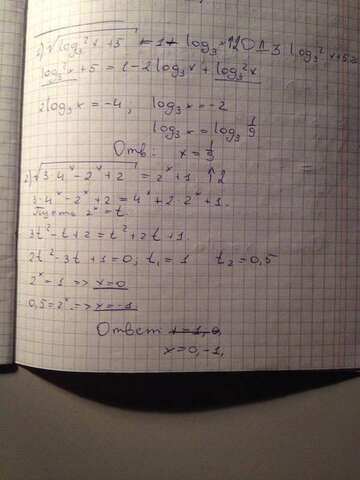 1) √(log₃²x+5) = 1- log₃x ↑2 ОДЗ log₃²x+5≥
log₃²x+5 = 1-2log₃x + log₃²x
2log₃x = -4; log₃x = -2
log₃x = log₃ 1/9
Отв. x = 1/9
2) √(3·4ˣ-2ˣ+2) = 2ˣ+1 ↑2
3·4ˣ-2ˣ+2 = 4ˣ+2·2ˣ+1.
Пусть 2ˣ=t.
3t²-t+2=t²+2t+1.
2t²-3t+1=0; t₁=1 t₂=0,5
2ˣ=1 => x=0
0,5=2ˣ => x=-1
Ответ x=1, 0,
x=0,-1,